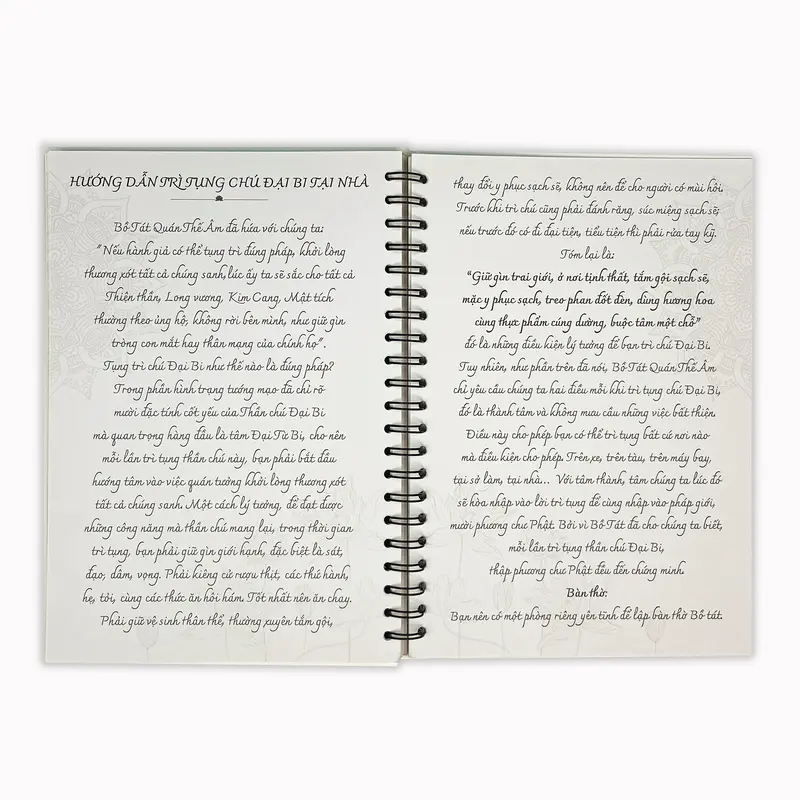 HƯỚNG DẪN TRÌ TỤNG CHÚ ĐẠI BI TẠI NHÀ
Bồ Tát Quán Thế Âm đã hứa với chúng ta:
"Nếu hành giả có thể tụng trì đúng pháp, khởi lòng
thương xót tất cả chúng sanh, lúc ấy ta sẽ sắc cho tất cả
Thiện thần, Long vương, Kim Cang, Mật tích
thường theo ủng hộ, không rời bên mình, như giữ gìn
tròng con mắt hay thân mạng của chính họ".
Tụng trì chú Đại Bi như thế nào là đúng pháp?
Trong phần hình trạng tướng mạo đã chỉ rõ
mười đặc tính cốt yếu của Thần chú Đại Bi
mà quan trọng hàng đầu là tâm Đại Từ Bi, cho nên
mỗi lần trì tụng thần chú này, bạn phải bắt đầu
hướng tâm vào việc quán tưởng khởi lòng thương xót
tất cả chúng sanh. Một cách lý tưởng, để đạt được
những công năng mà thần chú mang lại, trong thời gian
trì tụng, bạn phải giữ gìn giới hạnh, đặc biệt là sát,
đạo, dâm, vọng. Phải kiêng cử rượu thịt, các thứ hành,
hẹ, tỏi, cùng các thức ăn hôi hám. Tốt nhất nên ăn chay.
Phải giữ vệ sinh thân thể, thường xuyên tắm gội,
thay đổi y phục sạch sẽ, không nên để cho người có mùi hôi.
Trước khi trì chú cũng phải đánh răng, súc miệng sạch sẽ;
nếu trước đó có đi đại tiện, tiểu tiện thì phải rửa tay kỹ.
Tóm lại là:
"Giữ gìn trai giới, ở nơi tịnh thất, tắm gội sạch sẽ,
mặc y phục sạch, treo phan đốt đèn, dùng hương hoa
cùng thực phẩm cúng dường, buộc tâm một chỗ"
đó là những điều kiện lý tưởng để bạn trì chú Đại Bi.
Tuy nhiên, như phần trên đã nói, Bồ Tát Quán Thế Âm
chỉ yêu cầu chúng ta hai điều mỗi khi trì tụng chú Đại Bi,
đó là thành tâm và không mưu cầu những việc bất thiện.
Điều này cho phép bạn có thể trì tụng bất cứ nơi nào
mà điều kiện cho phép. Trên xe, trên tàu, trên máy bay,
tại sở làm, tại nhà... Với tâm thành, tâm chúng ta lúc đó
sẽ hòa nhập vào lời trì tụng để cùng nhập vào pháp giới,
mười phương chư Phật. Bởi vì Bồ Tát đã cho chúng ta biết,
mỗi lần trì tụng thần chú Đại Bi,
thập phương chư Phật đều đến chứng minh.
Bàn thờ:
Bạn nên có một phòng riêng yên tĩnh để lập bàn thờ Bồ tát.